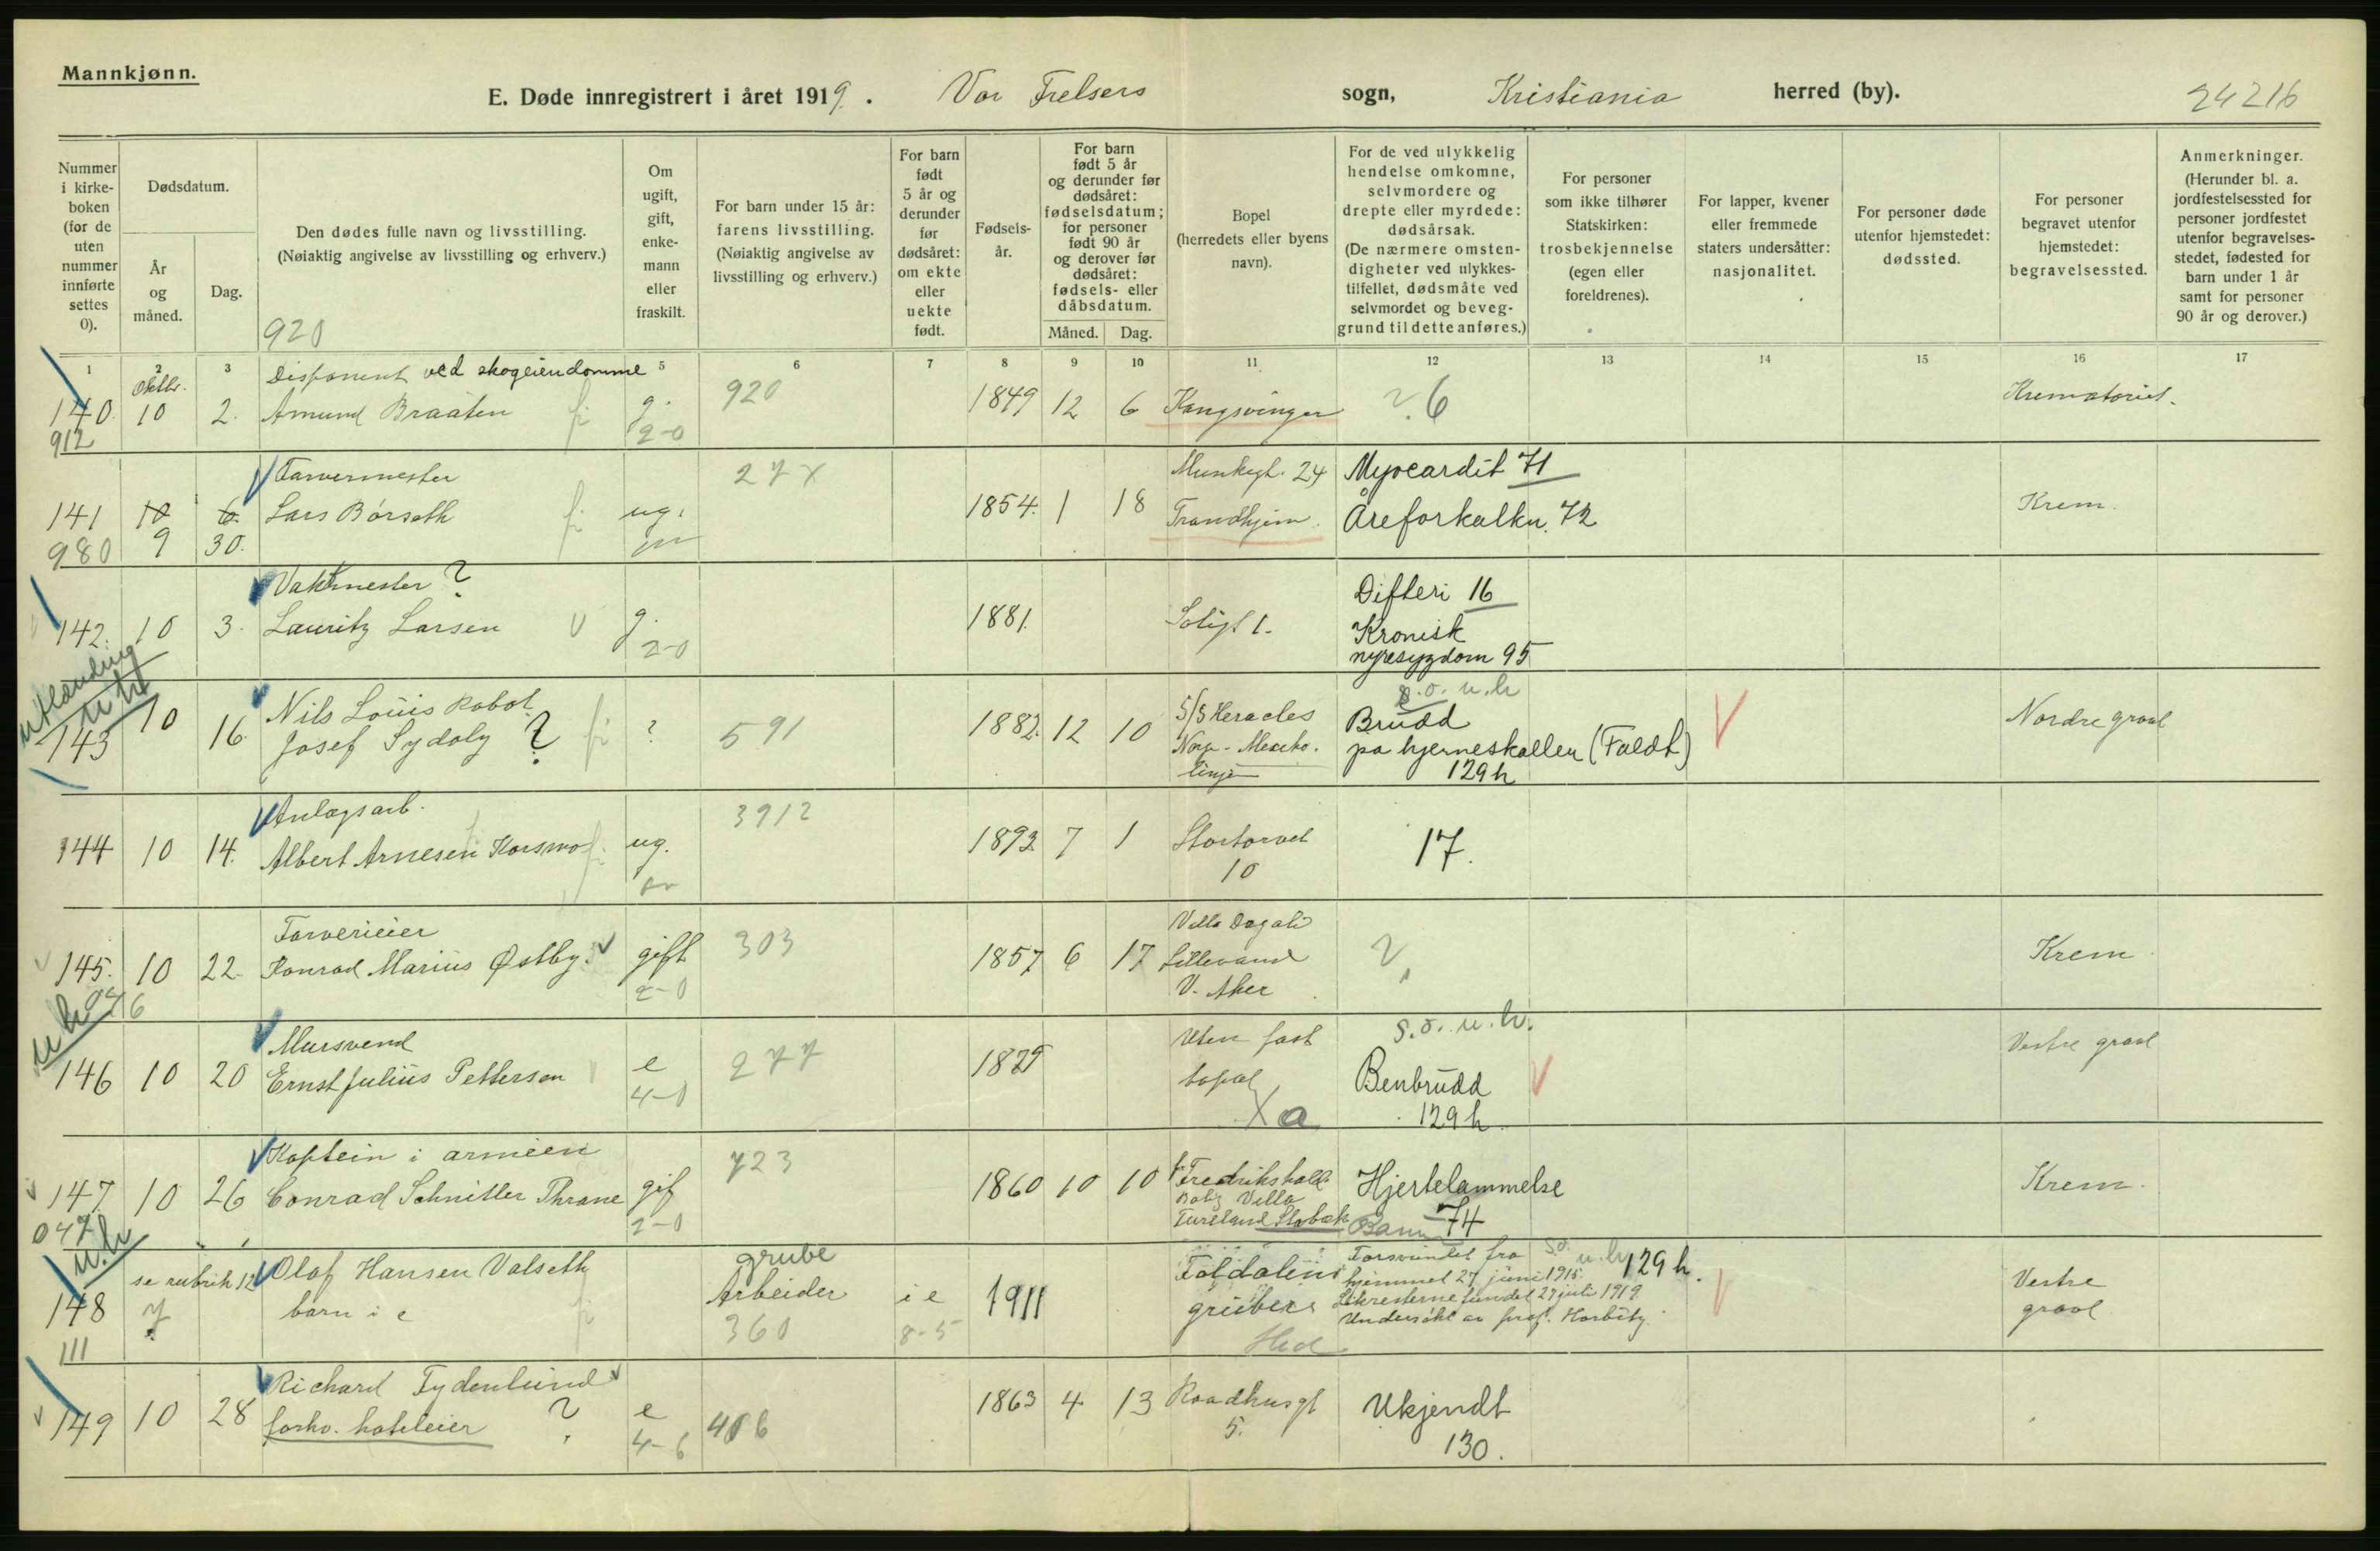 Mannkjønn.
E. Døde innregistrert i året 1919. Vor Frelsers sogn, Kristiania herred (by). 24216
Nummer i kirkeboken (for de uten nummer innførte settes 0).
Dødsdatum.
År og måned.
Dag.
Den dødes fulle navn og livsstilling.
(Nøiaktig angivelse av livsstilling og erhverv.)
920
Om ugift, gift, enkemann eller fraskilt.
For barn under 15 år: farens livsstilling.
(Nøiaktig angivelse av livsstilling og erhverv.)
For barn født 5 år og derunder før dødsåret: om ekte eller uekte født.
Fødselsår.
For barn født 5 år og derunder før dødsåret: fødselsdatum; for personer født 90 år og derover før dødsåret: fødsels- eller dåbsdatum.
Måned. Dag.
Bopel (herredets eller byens navn).
For de ved ulykkelig hendelse omkomne, selvmordere og drepte eller myrdede: dødsårsak.
(De nærmere omstendigheter ved ulykkestilfellet, dødsmåte ved selvmordet og beveggrund til dette anføres.)
For personer som ikke tilhører Statskirken: trosbekjennelse (egen eller foreldrenes).
For lapper, kvener eller fremmede staters undersåtter: nasjonalitet.
For personer døde utenfor hjemstedet: dødssted.
For personer begravet utenfor hjemstedet: begravelsessted.
Anmerkninger.
(Herunder bl. a. jordfestelsessted for personer jordfestet utenfor begravelsesstedet, fødested for barn under 1 år samt for personer 90 år og derover.)
1 2 3 5 6 7 8 9 10 11 12 13 14 15 16 17
Oktbr. Disponent ved skogeiendomme
140. 10 2. Amund Braaten g. 920 1849 12 6 Kongsvinger ? 6 Krematoriet.
912 2-0
Farvermester 277 Munkegt. 24 Myocardit 71
141 10 6. Lars Børseth ug. 1854. 1 18 Trondhjem. Åreforkalkn. 72 Krem.
980 9 30.
Vaktmester ? Difteri 16
142. 10 3. Lauritz Larsen g. 1881. Soligt 1. Kronisk
2-0 nyresygdom 95
utlænding
u.h. s.o. u.h
143 10 16. Nils Louis Robot ? 591 1882. 12 10 S/S Heracles Brudd Nordre gravl
Josef Sydoly ? Norge-Mexiko. pa hjerneskallen (Faldt)
linjen 129 h
Anlægsarb. 3912
144 10 14. Albert Arnesen Korsmo ug. 1892 7 1 Stortorvet 17.
10
Farverieier Villa Dagali
145. 10 22. Konrad Marius Østby gift 303 1857 6 17 Lillevand ? Krem
2-0 V. Aker
u.h. Mursvend Uten fast s.o. u.h.
146 10 20 Ernst Julius Pettersen e 277 1879 bopæl Benbrudd Vestre gravl
4-0 X a 129 h.
Kaptein i armeen 723
147. 10 26 Conrad Schnitler Thrane gift 1860 10 10 Fredrikshald Hjertelammelse Krem.
047 2-0 Villa 74
Stabæk Bærum
u.h. se rubrik 12 Olaf Hansen Valseth grube Foldalens Forsvundet fra s.o. u.h 129 h.
148 ? barn i e Arbeider i e 1911 gruber hjemmet 27 juni 1915. Vestre
111 360 8-5 Hed Likresterne fundet 27 juli 1919 gravl
Undersøkt av prof. Harbitz.
149 10 28 Richard Tydenlund e 406 1863 4 13 Raadhusgt Ukjendt
forhv. hoteleier ? 4-6 5. 130.